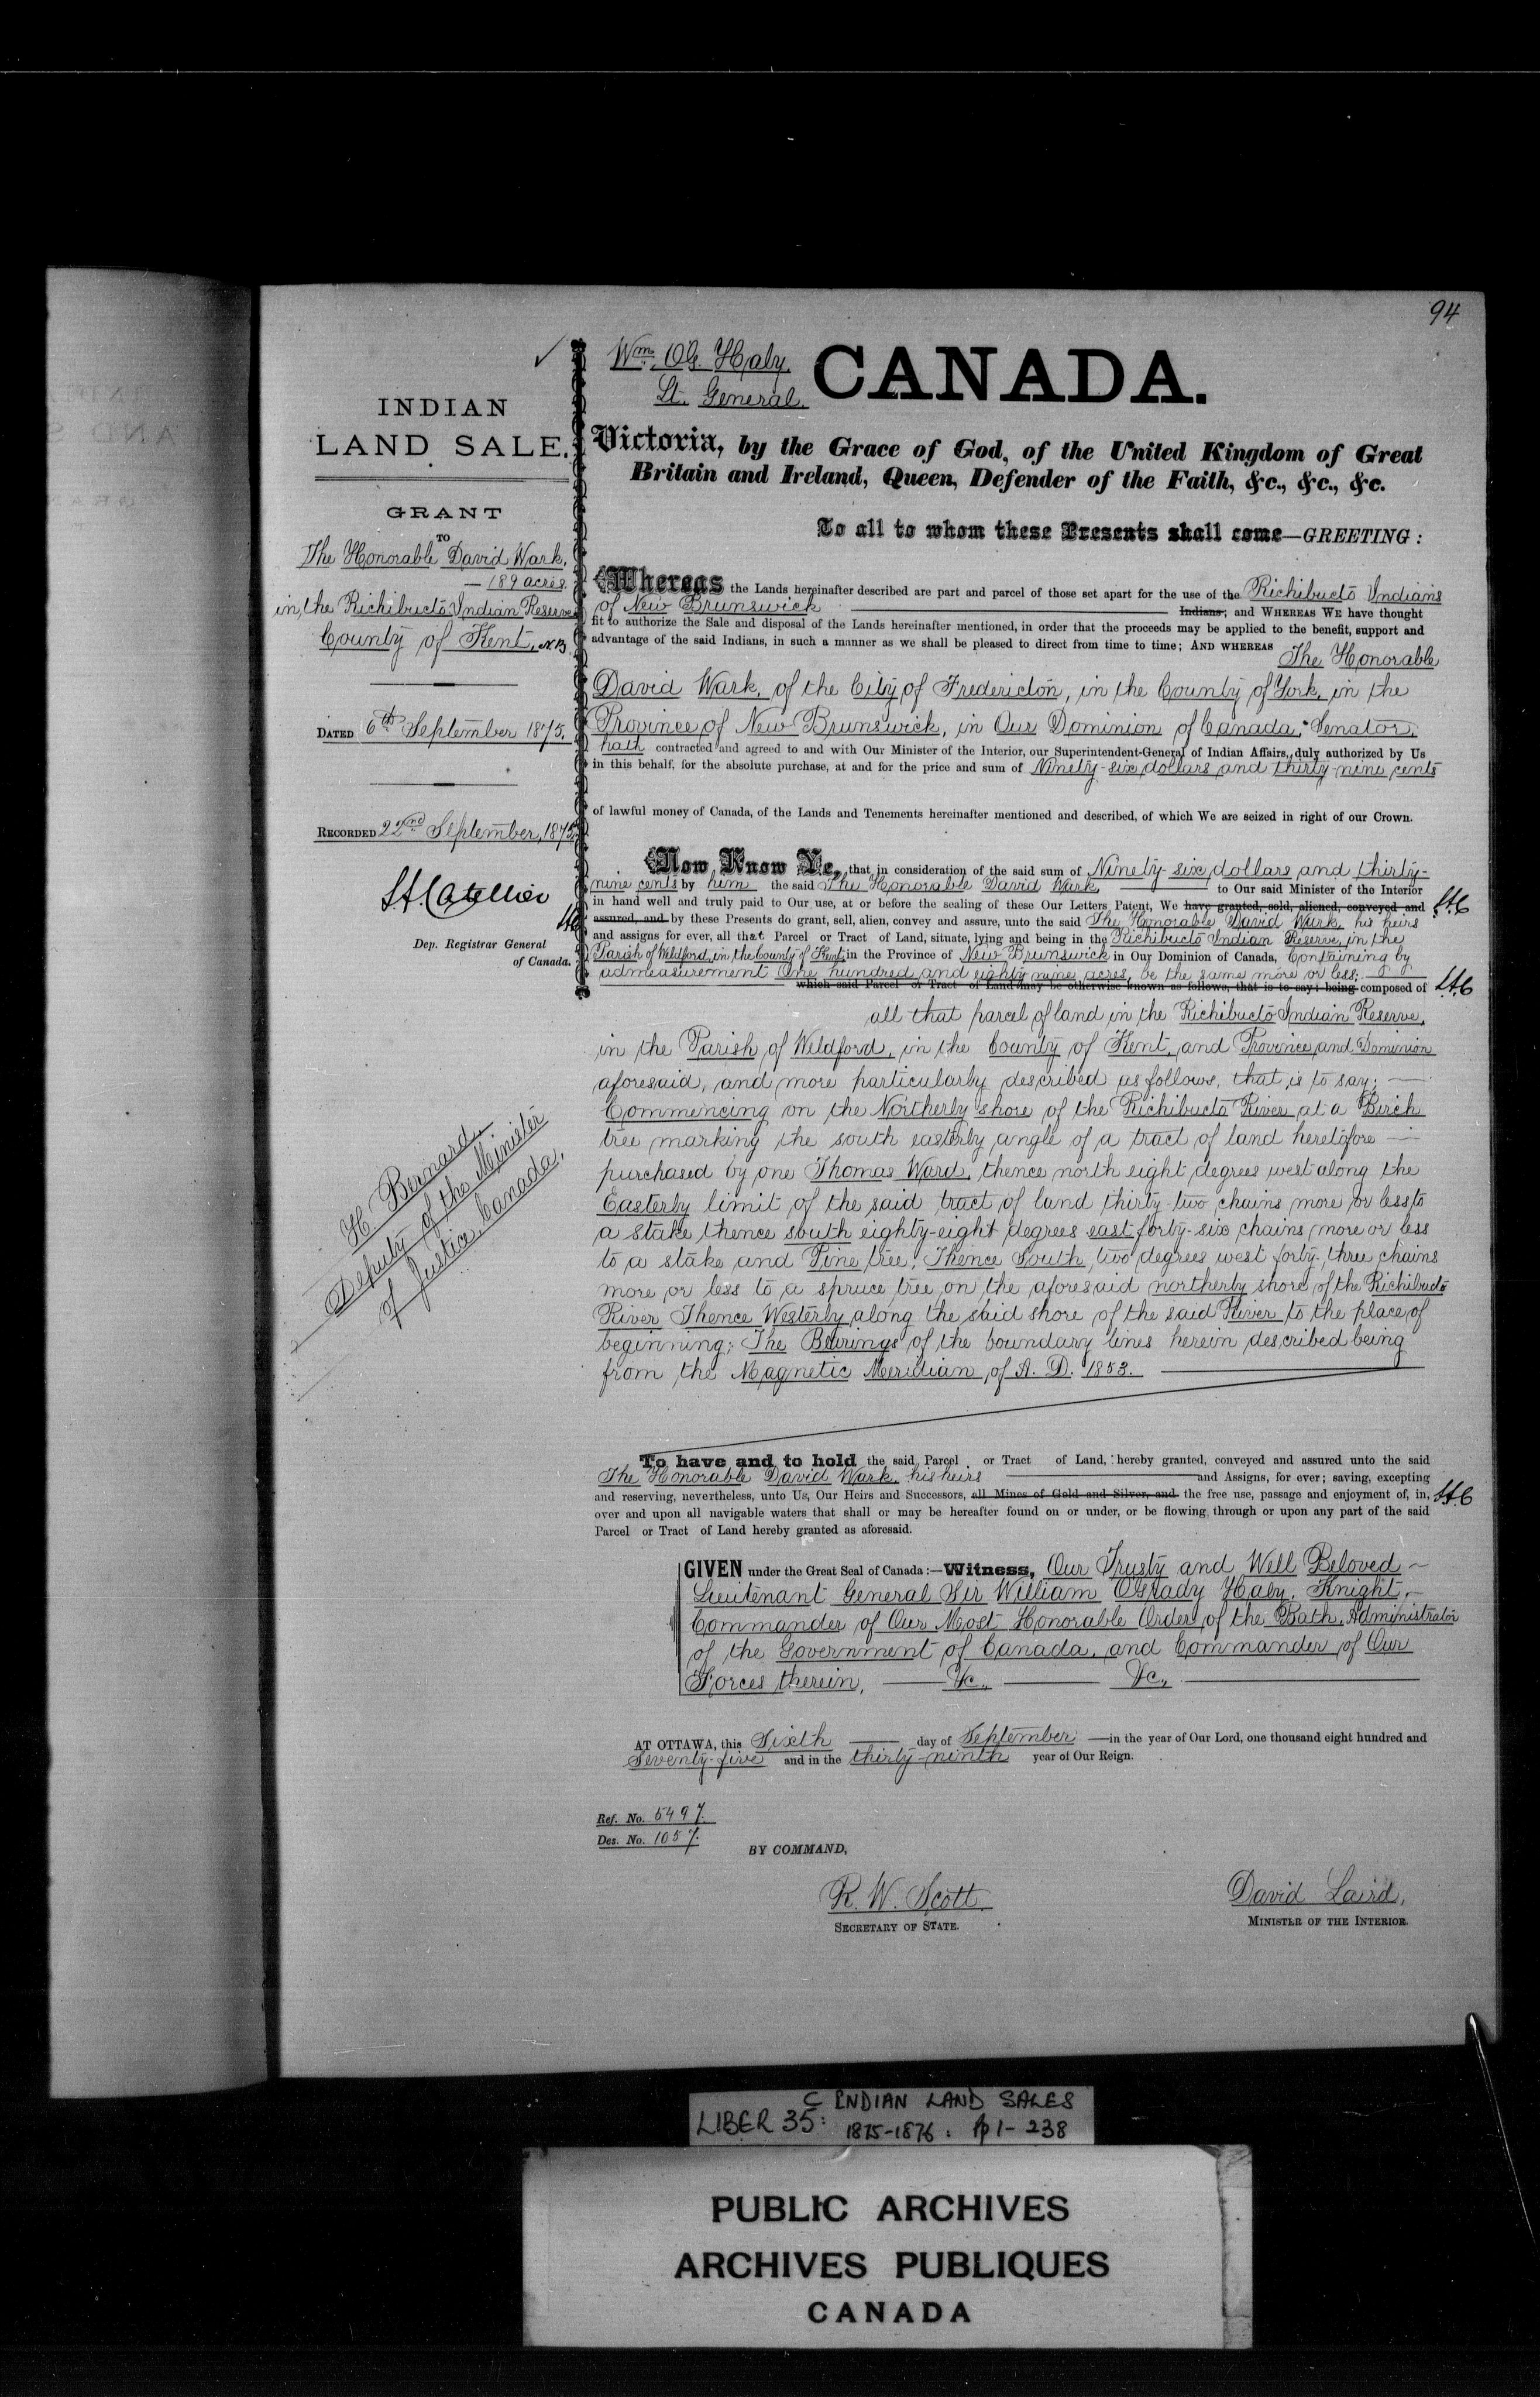 94
✓
INDIAN
LAND SALE.
GRANT
TO
The Honorable David Wark.
— 189 acres.
in the Richibucto Indian Reserve
County of Kent, N.B.
DATED 6th September 1875.
RECORDED 22nd September, 1875.
Dep. Registrar General
of Canada.
H Bernard
Deputy of the Minister
of Justice, Canada.
Wm. OG. Haly.
Lt. General.
CANADA.
Victoria, by the Grace of God, of the United Kingdom of Great
Britain and Ireland, Queen, Defender of the Faith, &c., &c., &c.
To all to whom these Presents shall come—GREETING:
Whereas the Lands hereinafter described are part and parcel of those set apart for the use of the Richibucto Indians
of New Brunswick Indians; and WHEREAS WE have thought
fit to authorize the Sale and disposal of the Lands hereinafter mentioned, in order that the proceeds may be applied to the benefit, support and
advantage of the said Indians, in such a manner as we shall be pleased to direct from time to time; AND WHEREAS The Honorable
David Wark, of the City of Fredericton, in the County of York, in the
Province of New Brunswick, in Our Dominion of Canada, Senator,
hath contracted and agreed to and with Our Minister of the Interior, our Superintendent-General of Indian Affairs, duly authorized by Us
in this behalf, for the absolute purchase, at and for the price and sum of Ninety-six dollars and thirty-nine cents
of lawful money of Canada, of the Lands and Tenements hereinafter mentioned and described, of which We are seized in right of our Crown.
Now Know Ye, that in consideration of the said sum of Ninety-six dollars and thirty-
nine cents by him the said The Honorable David Wark to Our said Minister of the Interior
in hand well and truly paid to Our use, at or before the sealing of these Our Letters Patent, We have granted, sold, aliened, conveyed and
assured, and by these Presents do grant, sell, alien, convey and assure, unto the said The Honorable David Wark, his heirs
and assigns for ever, all that Parcel or Tract of Land, situate, lying and being in the Richibucto Indian Reserve, in the
Parish of Weldford, in the County of Kent in the Province of New Brunswick in Our Dominion of Canada, Containing by
admeasurement One hundred and eighty nine acres, be the same more or less;
which said Parcel or Tract of Land may be otherwise known as follows, that is to say: being composed of
all that parcel of land in the Richibucto Indian Reserve,
in the Parish of Weldford, in the County of Kent, and Province and Dominion
aforesaid, and more particularly described as follows, that is to say:—
Commencing on the Northerly shore of the Richibucto River at a Birch
tree marking the south easterly angle of a tract of land heretofore —
purchased by one Thomas Ward, thence north eight degrees west along the
Easterly limit of the said tract of land thirty-two chains more or less to
a stake thence south eighty-eight degrees east forty-six chains more or less
to a stake and Pine tree, Thence South two degrees west forty-three chains
more or less to a spruce tree on the aforesaid northerly shore of the Richibucto
River Thence Westerly along the said shore of the said River to the place of
beginning; The Bearings of the boundary lines herein described being
from the Magnetic Meridian of A. D. 1853.
To have and to hold the said Parcel or Tract of Land, hereby granted, conveyed and assured unto the said
The Honorable David Wark, his heirs and Assigns, for ever; saving, excepting
and reserving, nevertheless, unto Us, Our Heirs and Successors, all Mines of Gold and Silver, and the free use, passage and enjoyment of, in,
over and upon all navigable waters that shall or may be hereafter found on or under, or be flowing through or upon any part of the said
Parcel or Tract of Land hereby granted as aforesaid.
GIVEN under the Great Seal of Canada:—Witness, Our Trusty and Well Beloved —
Lieutenant General Sir William O'Grady Haly, Knight —
Commander of Our Most Honorable Order of the Bath, Administrator
of the Government of Canada, and Commander of Our
Forces therein, — &c., — &c.,
AT OTTAWA, this Sixth day of September —in the year of Our Lord, one thousand eight hundred and
Seventy-five and in the thirty-ninth year of Our Reign.
Ref. No. 5497.
Des. No. 1057.
BY COMMAND,
R. W. Scott.
SECRETARY OF STATE.
David Laird,
MINISTER OF THE INTERIOR.
C INDIAN LAND SALES
LIBER 35: 1875-1876: pp 1-238
PUBLIC ARCHIVES
ARCHIVES PUBLIQUES
CANADA